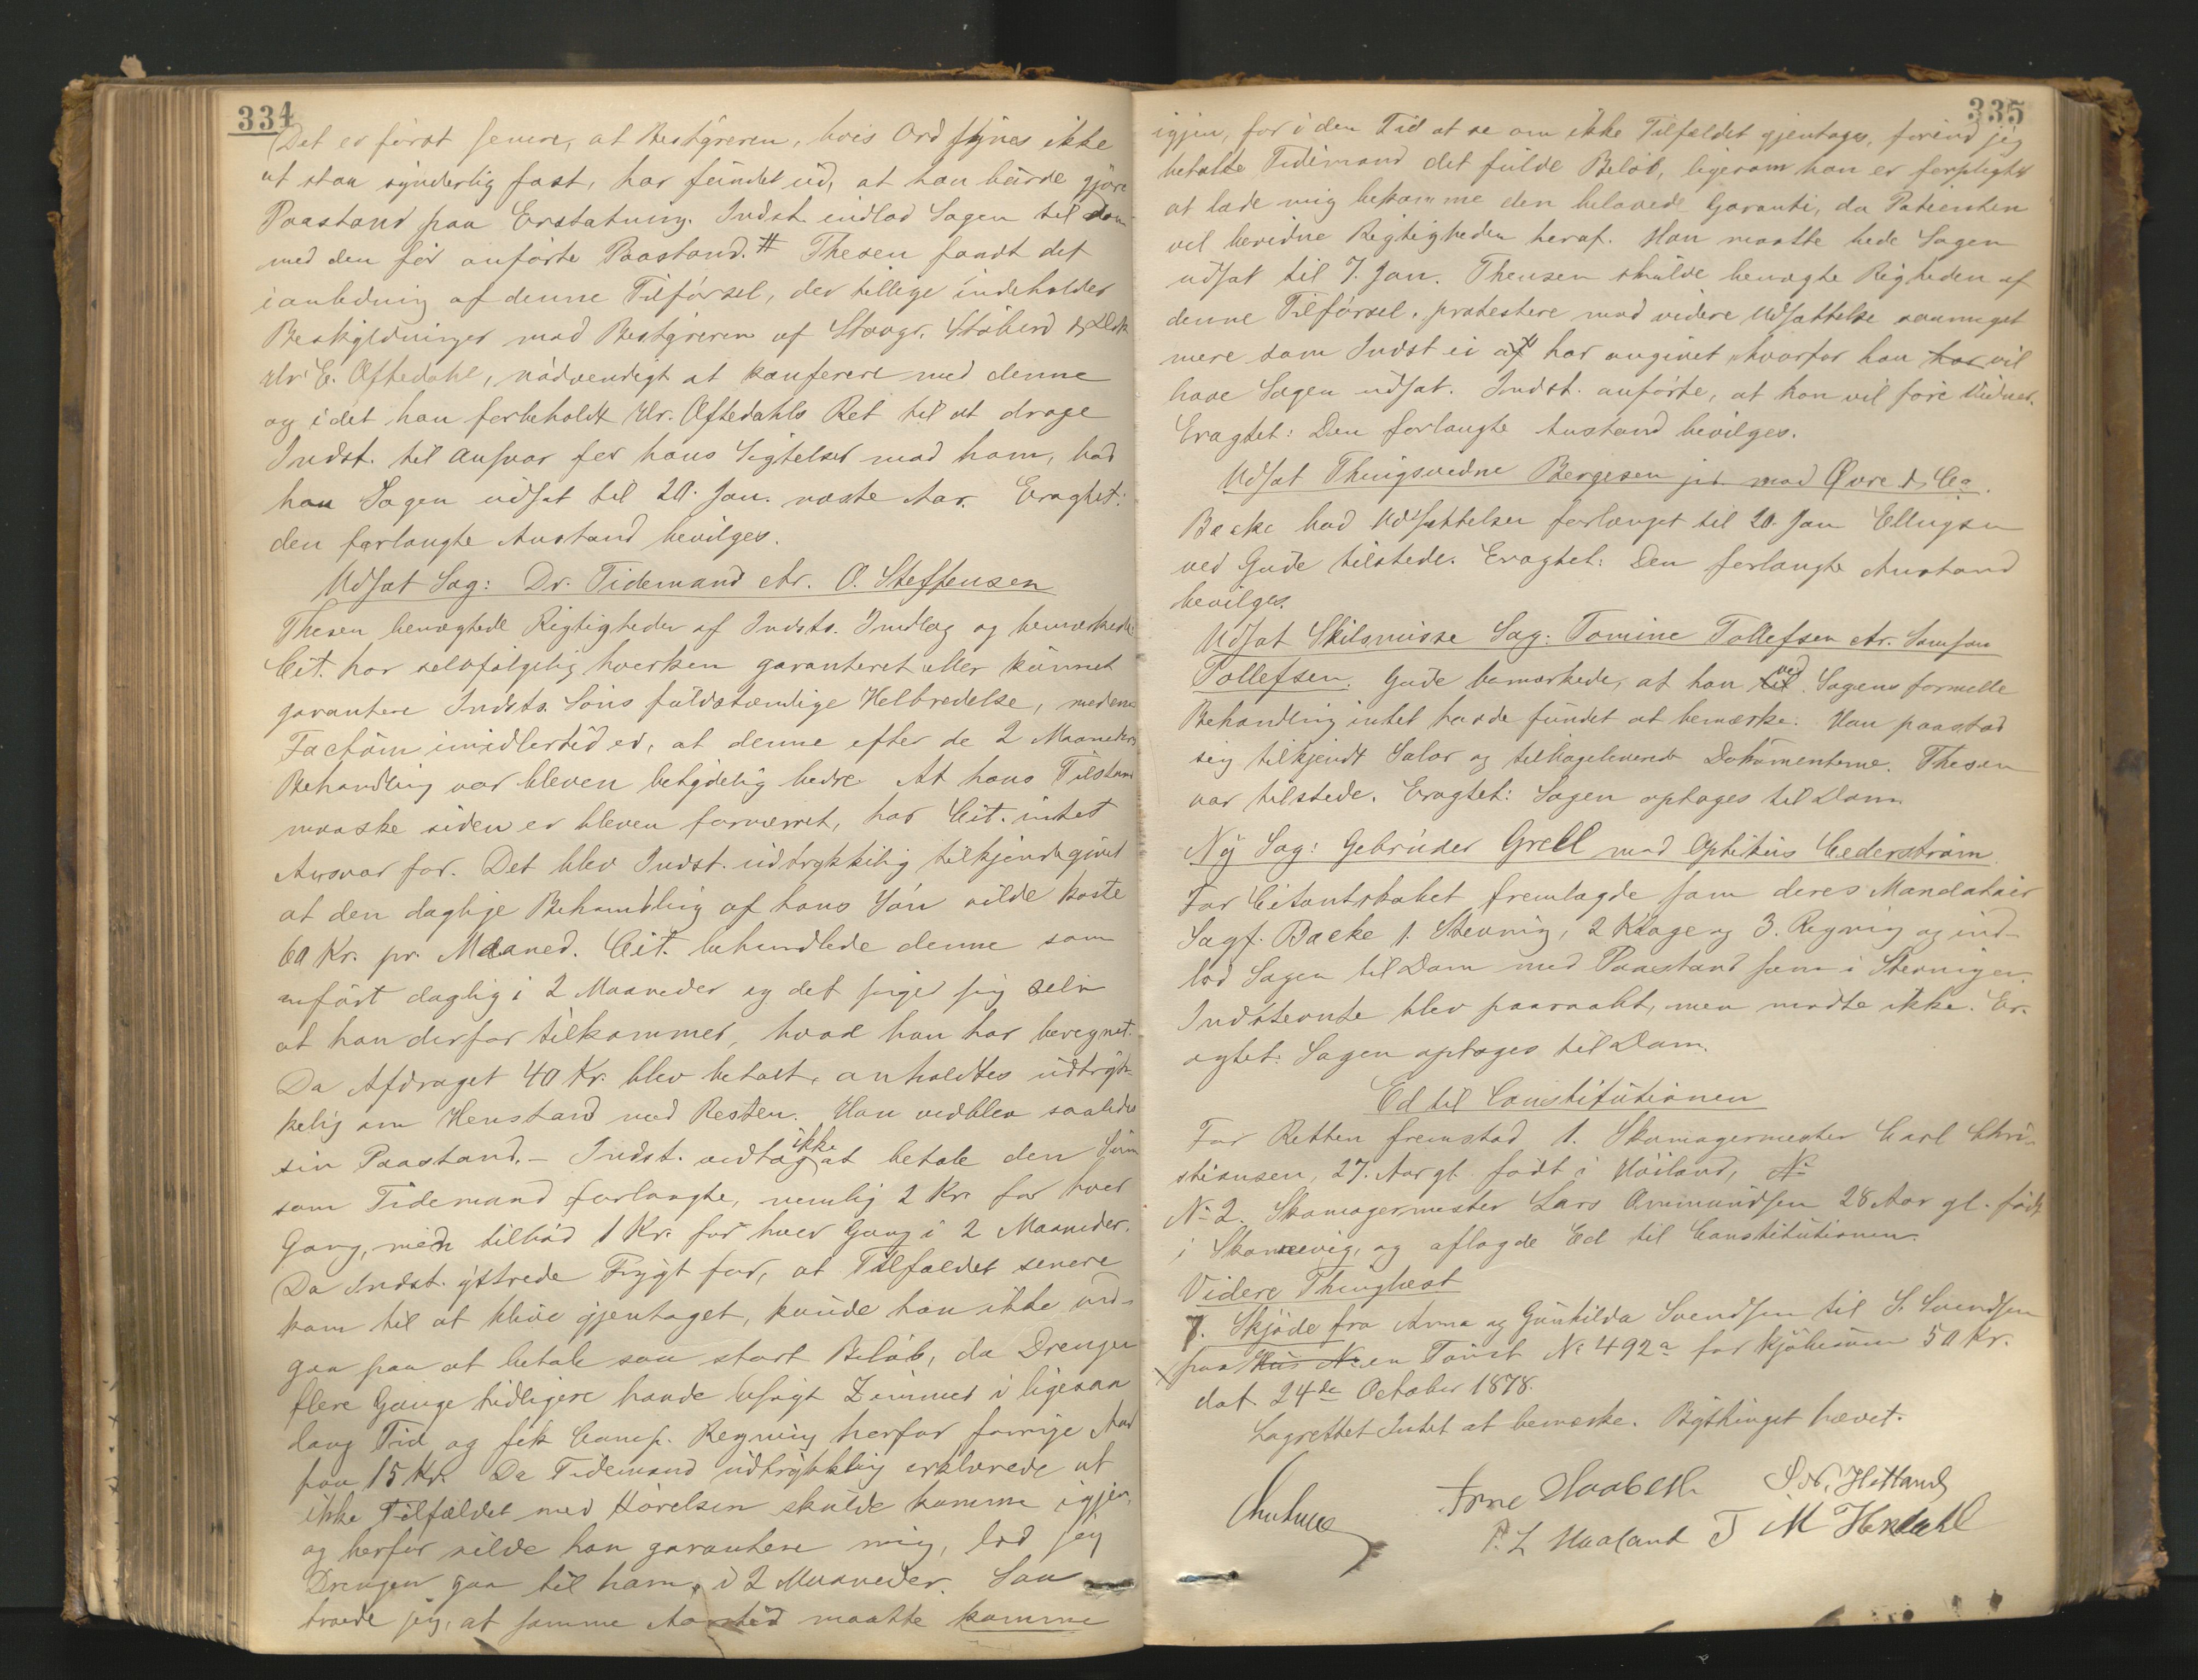 334
Det er først senere, at Bestyreren, hvis Ord synes ikke
at staa synderlig fast, har fundet ud, at han burde gjøre
Paastand paa Erstatning. Indst. indlod Sagen til Dom
med den før anførte Paastand. # Thesen fandt det
i anledning af denne Tilførsel, der tillige indeholder
Beskyldninger mod Bestyreren af Stavgr. Støberi & Dok
Hr. E. Oftedahl, nødvendigt at konferere med denne
og idet han forbeholdt Hr. Oftedahls Ret til at drage
Indst. til Ansvar for hans Sigtelser mod ham, bad
han Sagen udsat til 20. Jan. næste Aar. Eragtet:
den forlangte Anstand bevilges.
Udsat Sag: Dr. Tidemand ctr. O. Steffensen
Thesen benægtede Rigtigheden af Indsts. Indlæg og bemærkede
Cit. har selvfølgelig hverken garanteret eller kunnet
garantere Indsts. Søns fuldstændige Helbredelse, medens
Factum imidlertid er, at denne efter de 2 Maaneders
Behandling var bleven betydelig bedre. At hans Tilstand
maaske siden er bleven forværret, har Cit. intet
Ansvar for. Det blev Indst. udtrykkelig tilkjendegivet
at den daglige Behandling af hans Søn vilde koste
60 Kr. pr. Maaned. Cit. behandlede denne som
anført daglig i 2 Maaneder og det siger sig selv
at han derfor tilkommer, hvad han har beregnet.
Da Afdraget 40 Kr. blev betalt, anholdtes udtryk-
kelig om Henstand med Resten. Han vedblev saaledes
sin Paastand. – Indst. vedtog ikke at betale den Sum
som Tidemand forlangte, nemlig 2 Kr. for hver
Gang, men tilbød 1 Kr. for hver Gang i 2 Maaneder.
Da Indst. yttrede Frygt for, at Tilfældet senere
kom til at blive gjentaget, kunde han ikke ind-
gaa paa at betale saa stort Beløb, da Drengen
flere Gange tidligere havde besøgt Zimmer i ligesaa
lang Tid og fik Comp. Regning herfor forrige Aar
paa 15 Kr. Da Tidemand udtrykkelig erklærede at
ikke Tilfældet med Hørelsen skulde komme igjen,
og herfor vilde han garantere mig, lod jeg
Drengen gaa til ham i 2 Maaneder. Saa
troede jeg, at samme Aarstid maatte komme
335
igjen, for i den Tid at se om ikke Tilfældet gjentages, førend jeg
betalte Tidemand det fulde Beløb, ligesom han er forpligtet
at lade mig bekomme den belovede Garanti, da Patienten
vil bevidne Rigtigheden heraf. Han maatte bede Sagen
udsat til 7. Jan. Thensen skulde benægte Righeden af
denne Tilførsel, protestere mod videre Udsættelse saameget
mere som Indst ei har angivet, hvorfor han har vil
have Sagen udsat. Indst. anførte, at han vil føre Vidner.
Eragtet: Den forlangte Anstand bevilges.
Udsat Thingsvidne Bergesen jr. mod Øvre & Co.
Backe bad Udsættelsen forlænget til 20. Jan Ellingsen
ved Gude tilstede. Eragtet: Den forlangte Anstand
bevilges.
Udsat Skilsmisse Sag: Tomine Tollefsen ctr. Samson
Tollefsen. Gude bemærkede, at han til ved Sagens formelle
Behandling intet havde fundet at bemærke. Han paastod
sig tilkjendt Salær og tilbageleveret Dokumenterne. Thesen
var tilstede. Eragtet: Sagen optages til Dom.
Ny Sag: Gebrüder Grell mod Optikus Cederstrøm.
For Citantskabet fremlagde som deres Mandatair
Sagf. Backe 1. Stevning, 2 Klage og 3. Regning og ind-
lod Sagen til Dom med Paastand som i Stevningen.
Indstevnte blev paaraabt, men mødte ikke. Er-
agtet: Sagen optages til Dom.
Ed til Constitutionen
For Retten fremstod 1. Skomagermester Carl Chri-
stiansen, 27. Aar gl. født i Høiland, No
No 2. Skomagermester Lars Ommundsen 28 Aar gl. født
i Skonevig, og aflagde Ed til Constitutionen.
Videre Thinglæst
7. Skjøde fra Anna og Gunhilda Svendsen til S. Svendsen
paa Hus No en Tomt No 492a for Kjøbesum 50 Kr.
dat. 24de October 1878.
Lagrettet Intet at bemærke. Bythinget hævet.
Arne Haabeth S. N. Hetland
P. L. Haaland T M Hendahl